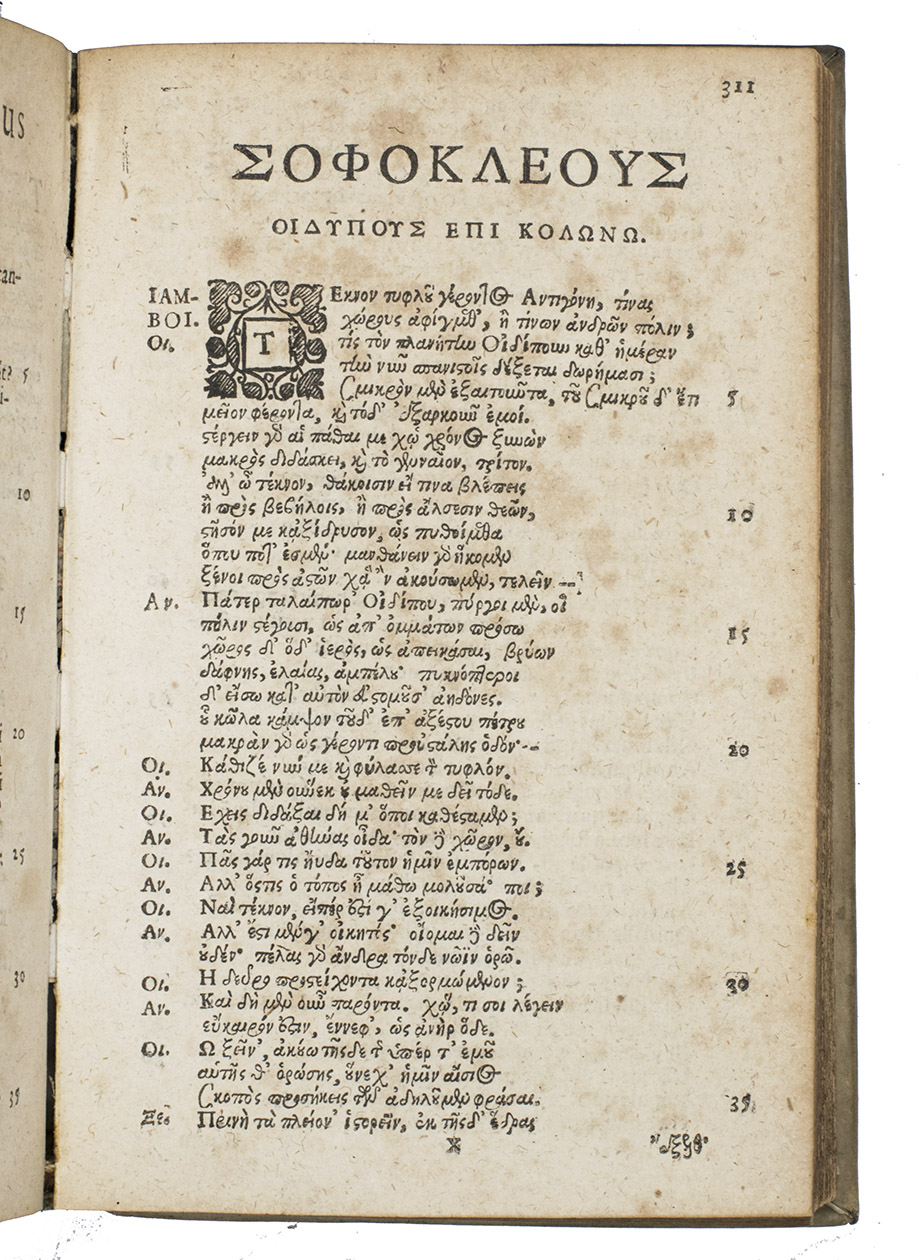 us
can-
it? 5
i-
10
15
20
25
30
35
311
ΣΟΦΟΚΛΕΟΥΣ
ΟΙΔΥΠΟΥΣ ΕΠΙ ΚΟΛΩΝΩ.
ΙΑΜ- ΤΕκνον τυφλοῦ γέροντος Αντιγόνη, τίνας
ΒΟΙ. χώρους ἀφίγμεθ', ἢ τίνων ἀνδρῶν πόλιν;
Οι. τίς τὸν πλανήτην Οἰδίπουν καθ' ἡμέραν
τὴν νῦν σπανιστοῖς δέξεται δωρήμασι;
Σμικρὸν μὲν ἐξαιτοῦντα, τοῦ Σμικροῦ δ' ἔτι 5
μεῖον φέροντα, καὶ τόδ' ἐξαρκοῦν ἐμοί.
στέργειν γὰρ αἱ πάθαι με χὠ χρόνος ξυνὼν
μακρὸς διδάσκει, καὶ τὸ γενναῖον, τρίτον.
ἀλλ' ὦ τέκνον, θάκοισιν εἴ τινα βλέπεις
ἢ πρὸς βεβήλοις, ἢ πρὸς ἄλσεσιν θεῶν, 10
στῆσόν με κἀξίδρυσον, ὡς πυθοίμεθα
ὅπου ποτ' ἐσμέν· μανθάνειν γὰρ ἥκομεν
ξένοι πρὸς ἀστῶν χἂν ἀκούσωμεν, τελεῖν --
Αν. Πάτερ ταλαίπωρ' Οἰδίπου, πύργοι μὲν, οἳ
πόλιν στέγουσι, ὡς ἀπ' ὀμμάτων πρόσω 15
χῶρος δ' ὅδ' ἱερὸς, ὡς ἀπεικάσαι, βρύων
δάφνης, ἐλαίας, ἀμπέλου· πυκνόπτεροι
δ' εἴσω κατ' αὐτὸν εὐστομοῦσ' ἀηδόνες.
οὗ κῶλα κάμψον τοῦδ' ἐπ' ἀξέστου πέτρου
μακρὰν γὰρ ὡς γέροντι προὐστάλης ὁδόν·-- 20
Οι. Κάθιζέ νυν με καὶ φύλασσε τὸν τυφλόν.
Αν. Χρόνου μὲν οὕνεκ' οὐ μαθεῖν με δεῖ τόδε.
Οι. Εχεις διδάξαι δή μ' ὅποι καθέσταμεν;
Αν. Τὰς γοῦν ἀθήνας οἶδα· τὸν δὲ χῶρον, οὔ.
Οι. Πᾶς γάρ τις ηὔδα τοῦτον ἡμῖν ἐμπόρων. 25
Αν. Αλλ' ὅστις ὁ τόπος ἢ μάθω μολοῦσά ποι;
Οι. Ναὶ τέκνον, εἴπερ ἐστί γ' ἐξοικήσιμος.
Αν. Αλλ' ἔστι μέν γ' οἰκητός· οἴομαι δὲ δεῖν
οὐδέν· πέλας γὰρ ἄνδρα τόνδε νῶϊν ὁρῶ.
Οι. Η δεῦρο προστείχοντα κἀξορμώμενον; 30
Αν. Καὶ δὴ μὲν οὖν παρόντα. χὤ, τι σοι λέγειν
εὔκαιρόν ἐστιν, ἔννεφ', ὡς ἀνὴρ ὅδε.
Οι. Ω ξεῖν', ἀκούων τῆσδε τῆς ὑπέρ τ' ἐμοῦ
αὑτῆς θ' ὁρώσης, οὕνεχ' ἡμῖν αἴσιος
Σκοπὸς προσήκεις τῶν ἀδηλοῦμεν φράσαι. 35
Ξε. Πρινὴ τὰ πλείον' ἱστορεῖν, ἐκ τῆσδ' ἕδρας
X ἔξελθ'